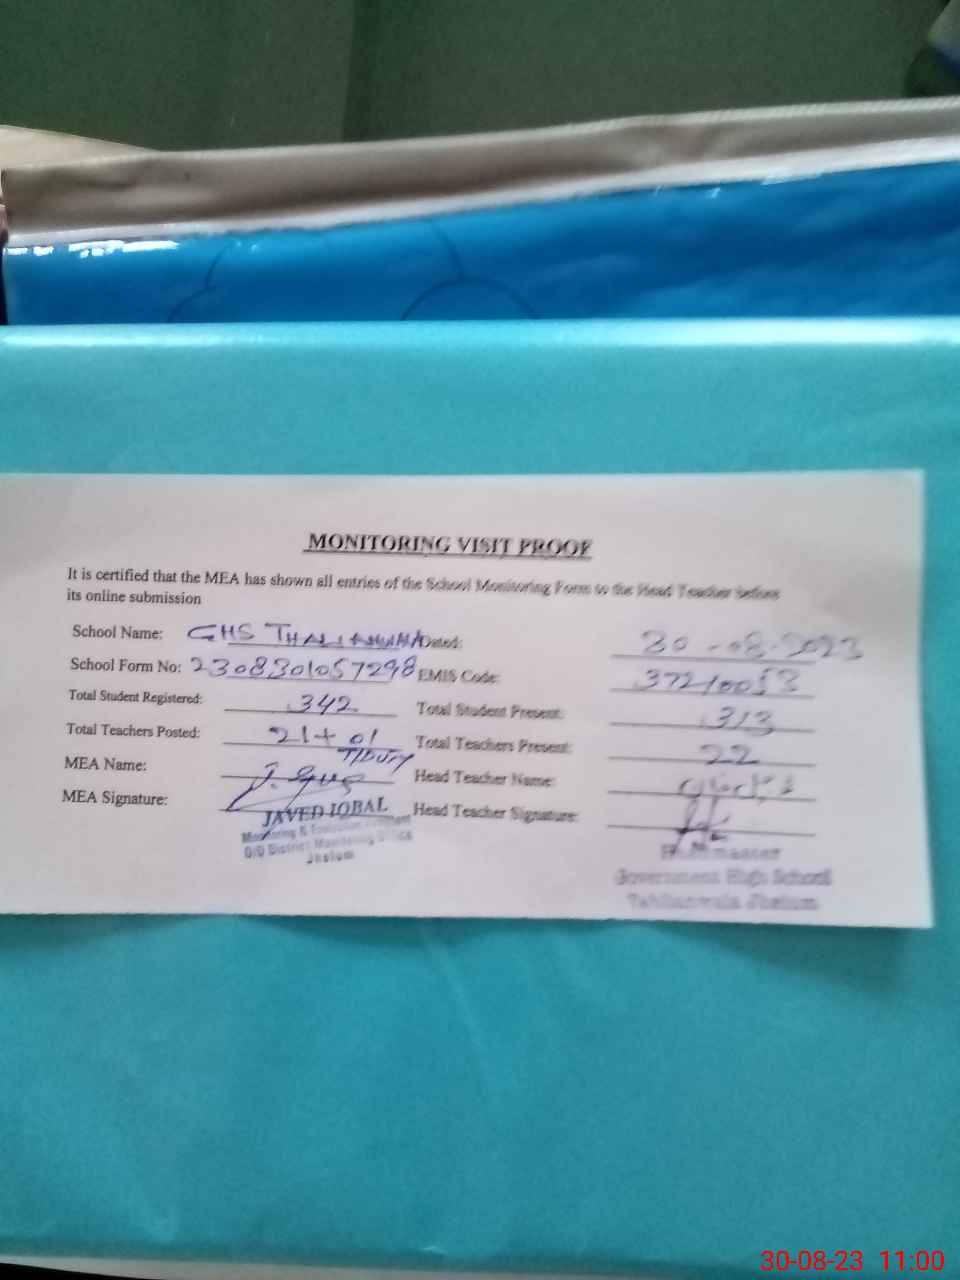 MONITORING VISIT PROOF
It is certified that the MEA has shown all entries of the School Monitoring Form to the Head Teacher before
its online submission
School Name: GHS Dated: 30-08-2023
School Form No: 2308301057298 EMIS Code: 37210053
Total Student Registered: 342 Total Student Present: 313
Total Teachers Posted: 21+01 Total Teachers Present: 22
T/Duty
MEA Name: J. Head Teacher Name:
MEA Signature: Head Teacher Signature:
JAVED IQBAL
Monitoring & Evaluation
O/O District Monitoring Office
Jhelum
Headmaster
Government High School
Tahlianwala Jhelum
30-08-23 11:00